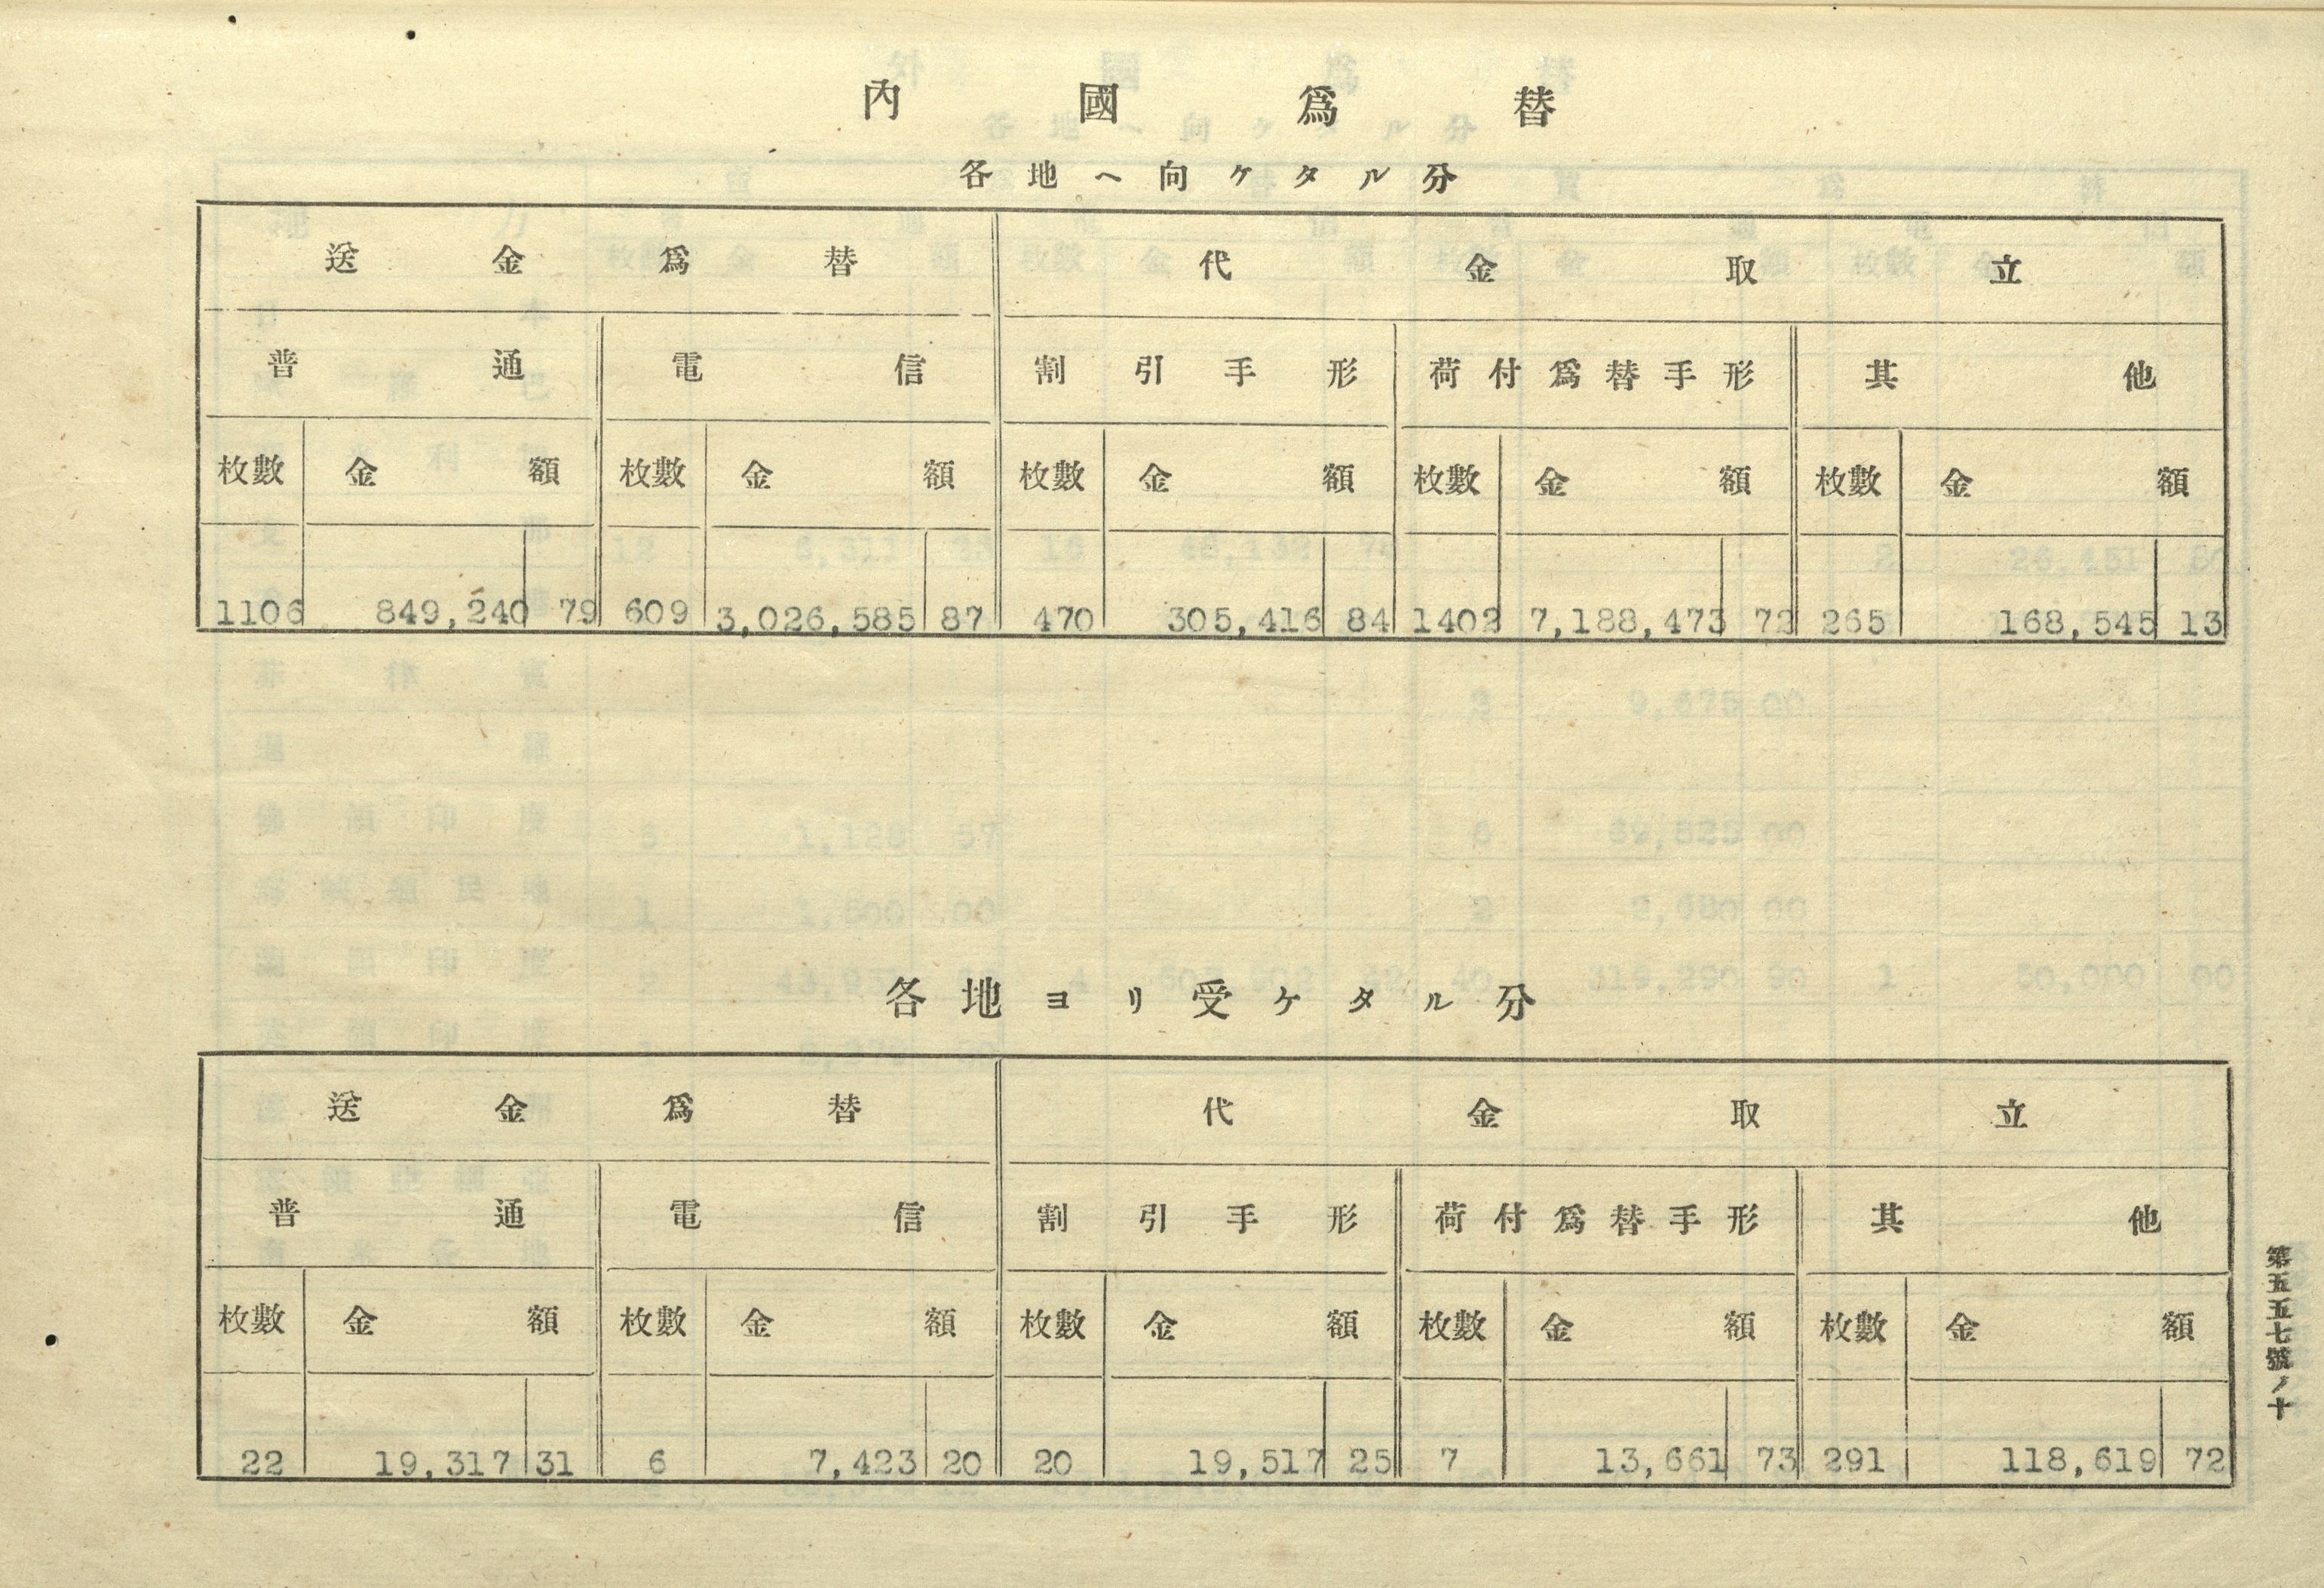 內國爲替
各地ヘ向ケタル分
送金爲替 代金取立
普通 電信 割引手形 荷付爲替手形 其他
枚數 金額 枚數 金額 枚數 金額 枚數 金額 枚數 金額
1106 849,240 79 609 3,026,585 87 470 305,416 84 1402 7,188,473 72 265 168,545 13
各地ヨリ受ケタル分
送金爲替 代金取立
普通 電信 割引手形 荷付爲替手形 其他
枚數 金額 枚數 金額 枚數 金額 枚數 金額 枚數 金額
22 19,317 31 6 7,423 20 20 19,517 25 7 13,661 73 291 118,619 72
第五五七號ノ十